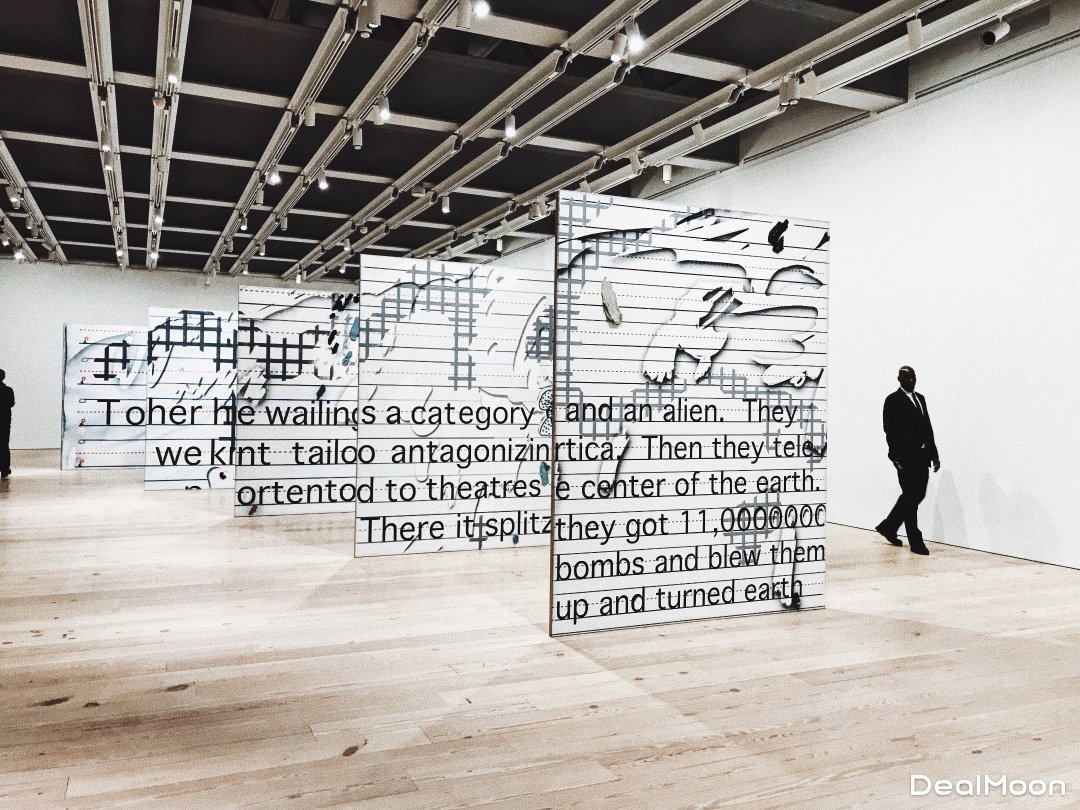 Toher he wailings a category and an alien. They
we knt tailoo antagonizinrtica. Then they tele
ortentod to theatres e center of the earth.
There it splitzthey got 11,0000000
bombs and blew them
up and turned earth
DealMoon